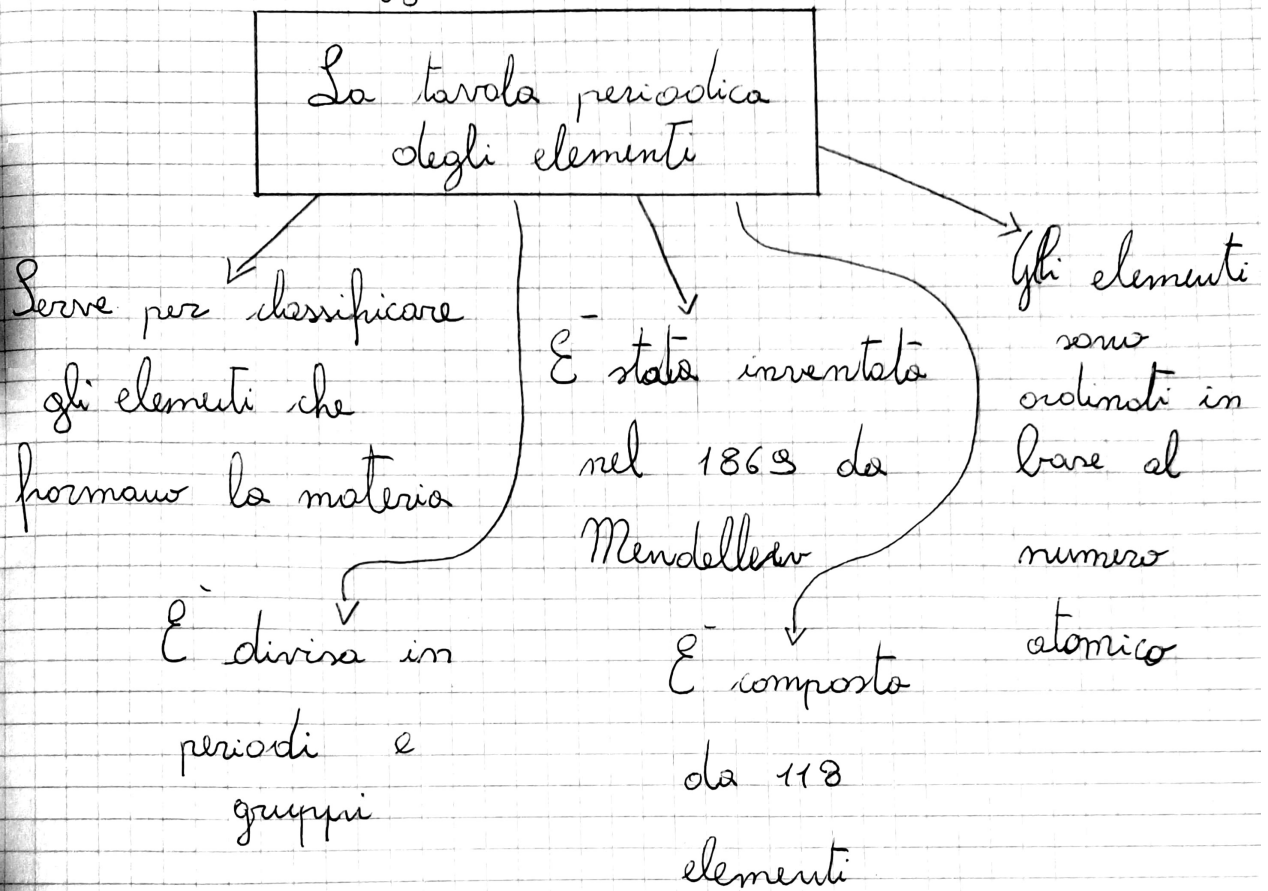 La tavola periodica
degli elementi
Serve per classificare
gli elementi che
formano la materia
È divisa in
periodi e
gruppi
È stata inventata
nel 1869 da
Mendelleev
È composta
da 118
elementi
Gli elementi
sono
ordinati in
base al
numero
atomico